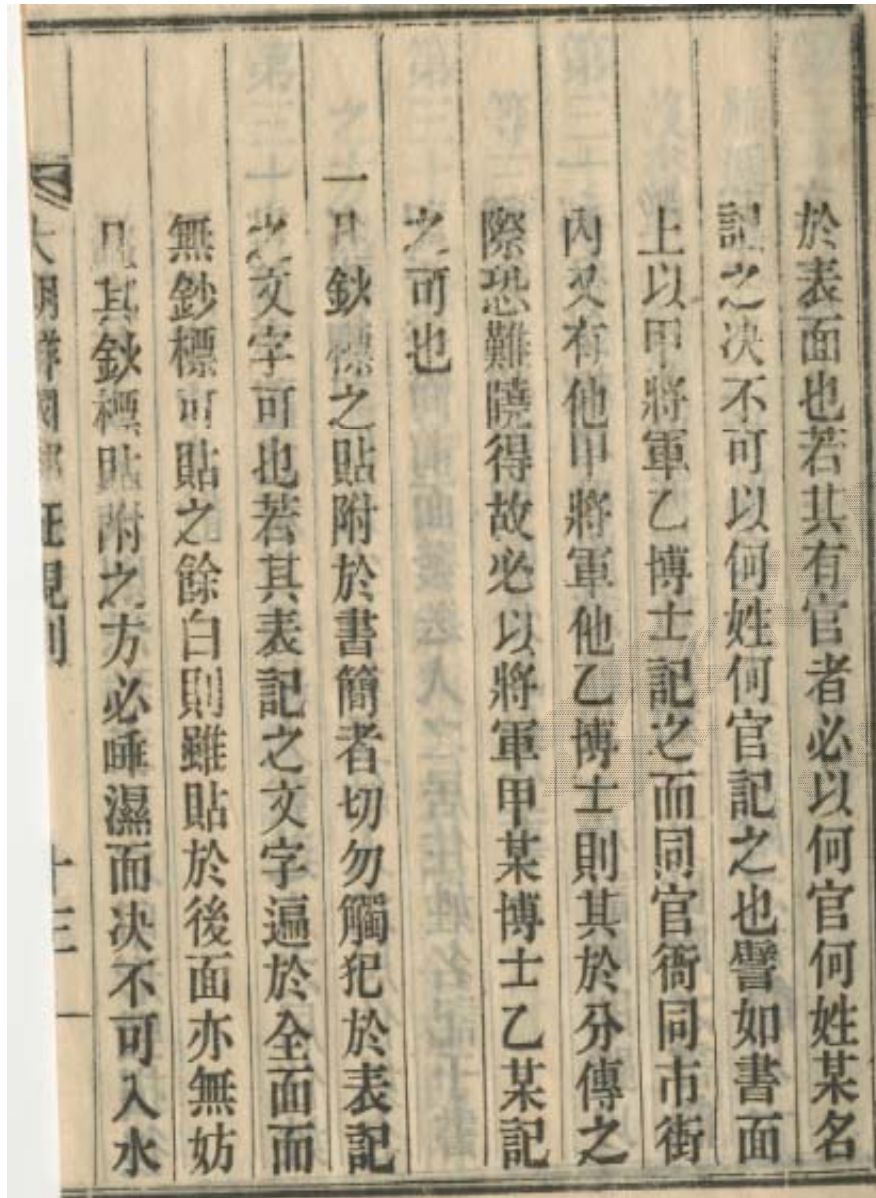 於表面也若其有官者必以何官何姓某名
記之决不可以何姓何官記之也譬如書面
上以甲將軍乙博士記之而同官衙同市街
內又有他甲將軍他乙博士則其於分傳之
際恐難曉得故必以將軍甲某博士乙某記
之可也
一凡鈔標之貼附於書簡者切勿觸犯於表記
之文字可也若其表記之文字遍於全面而
無鈔標可貼之餘白則雖貼於後面亦無妨
且其鈔標貼附之方必唾濕而决不可入水
大朝鮮國郵征規則 十三